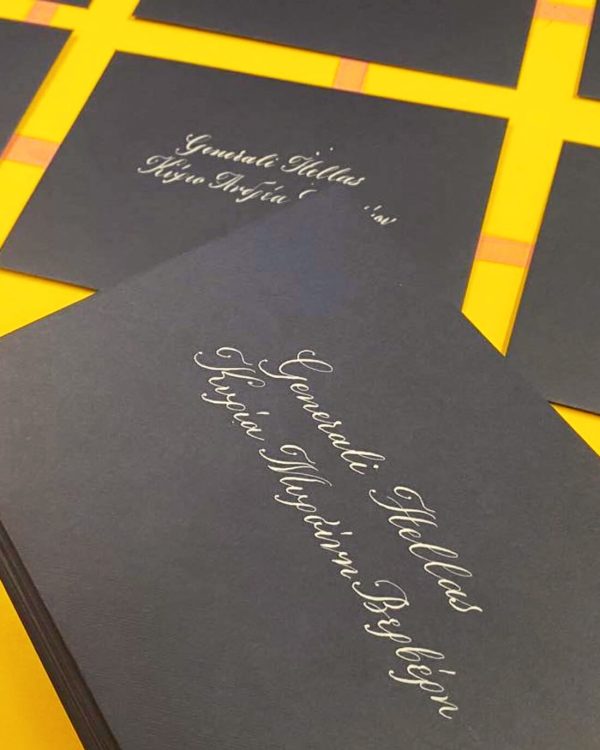 Generali Hellas
Κύριο Ανδρέα
Generali Hellas
Κυρία Μυρσίνη Βερβέρη